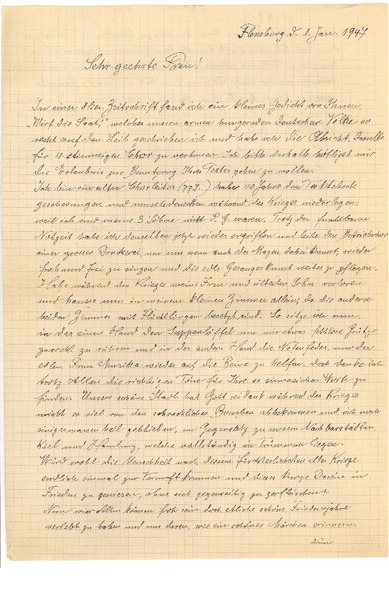 Flensburg d. 1. Jan. 1947
Sehr geehrte Frau!
In einer Zeitschrift fand ich ein kleines Gedicht von Ihnen
"Wirf die Saat," welches unsern armen hungernden deutschen Volke so
recht auf den Leib geschrieben ist und habe ich die Absicht, dasselbe
für 4 stimmigen Chor zu vertonen. Ich bitte deshalb höflichst mir
die Erlaubnis zur Benutzung Ihres Textes geben zu wollen.
Ich bin ein alter (773.) habe 40 Jahre den Taktstock
geschwungen und musste während des Krieges niederlegen,
weil ich und meine 3 Söhne nicht P.G. waren. Trotz der furchtbaren
Notzeit habe ich denselben jetzt wieder ergriffen und leite den
einer grossen Druckerei um wenn auch der Magen dabei knurrt, wieder
froh und frei zu singen und die edle Sangeskunst weiter zu pflegen.
Habe während des Krieges meine Frau und ältesten Sohn verloren
und hause nun in meinem kleinen Zimmer allein, da die anderen
beiden Zimmer mit Flüchtlingen besetzt sind. So sitze ich nun,
in der einen Hand den Suppenlöffel um mir etwas
zurecht zu rühren und in der andern Hand die Notenfeder, um der
edlen Frau Musika wieder auf die Beine zu helfen, doch denke ich
trotz Allem die richtigen Töne für Ihre so sinnreichen Worte zu
finden. Unsere schöne Stadt hat Gott sei Dank während des Krieges
nicht so viel von den schrecklichen Bomben abbekommen und ist noch
einigermassen heil geblieben, im Gegensatz zu unsern Nachbarstädten
Kiel und Hamburg, welche vollständig in Trümmern liegen.
Wird wohl die Menschheit nach diesem fürchterlichsten aller Kriege
endlich einmal zur Vernunft kommen und dieses kurze Dasein in
Frieden zu geniessen, ohne sich gegenseitig zu zerfleischen?
Nun wir Alten können froh sein doch etliche schöne Friedensjahre
verlebt zu haben und uns daran, wie ein schönes Märchen erinnern